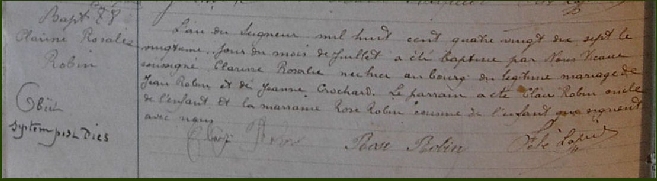 Bapt 78
Clarine Rosalie
Robin
Obiit
system post Dies
L'an du Seigneur mil huit cent quatre vingt dix sept le
vingtieme jour du mois de Juillet a été baptisée par Nous Vicaire
soussigné Clarine Rosalie née hier au bourg du légitime mariage de
Jean Robin et de Jeanne Crochard. Le parrain a été Elair Robin oncle
de l'enfant et la marraine Rose Robin cousine de l'enfant qui signent
avec nous
Rose Robin